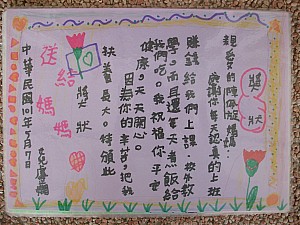 獎狀
親愛的陳佩媽媽：
感謝你每天認真的上班
賺錢給我們上課，校外教
學，而且還每天煮飯給
我們吃。我祝福你平安
健康，天天開心。
因為你的辛苦，把我
扶養長大。特頒此
獎狀
送給媽媽
中華民國101年5月7日